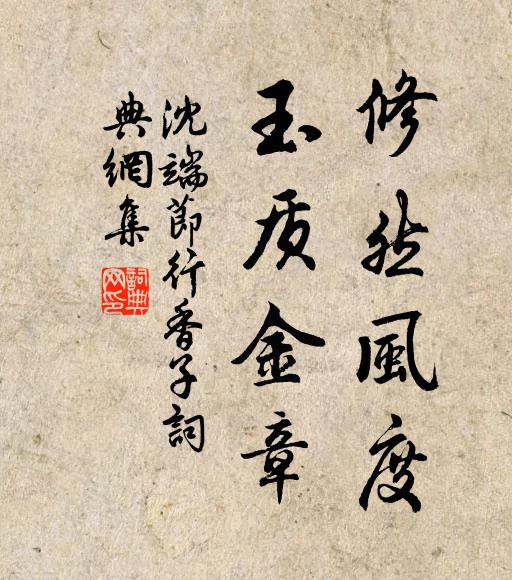 修然風度
玉质金章
沈端節行香子詞
典網集
詞典網印